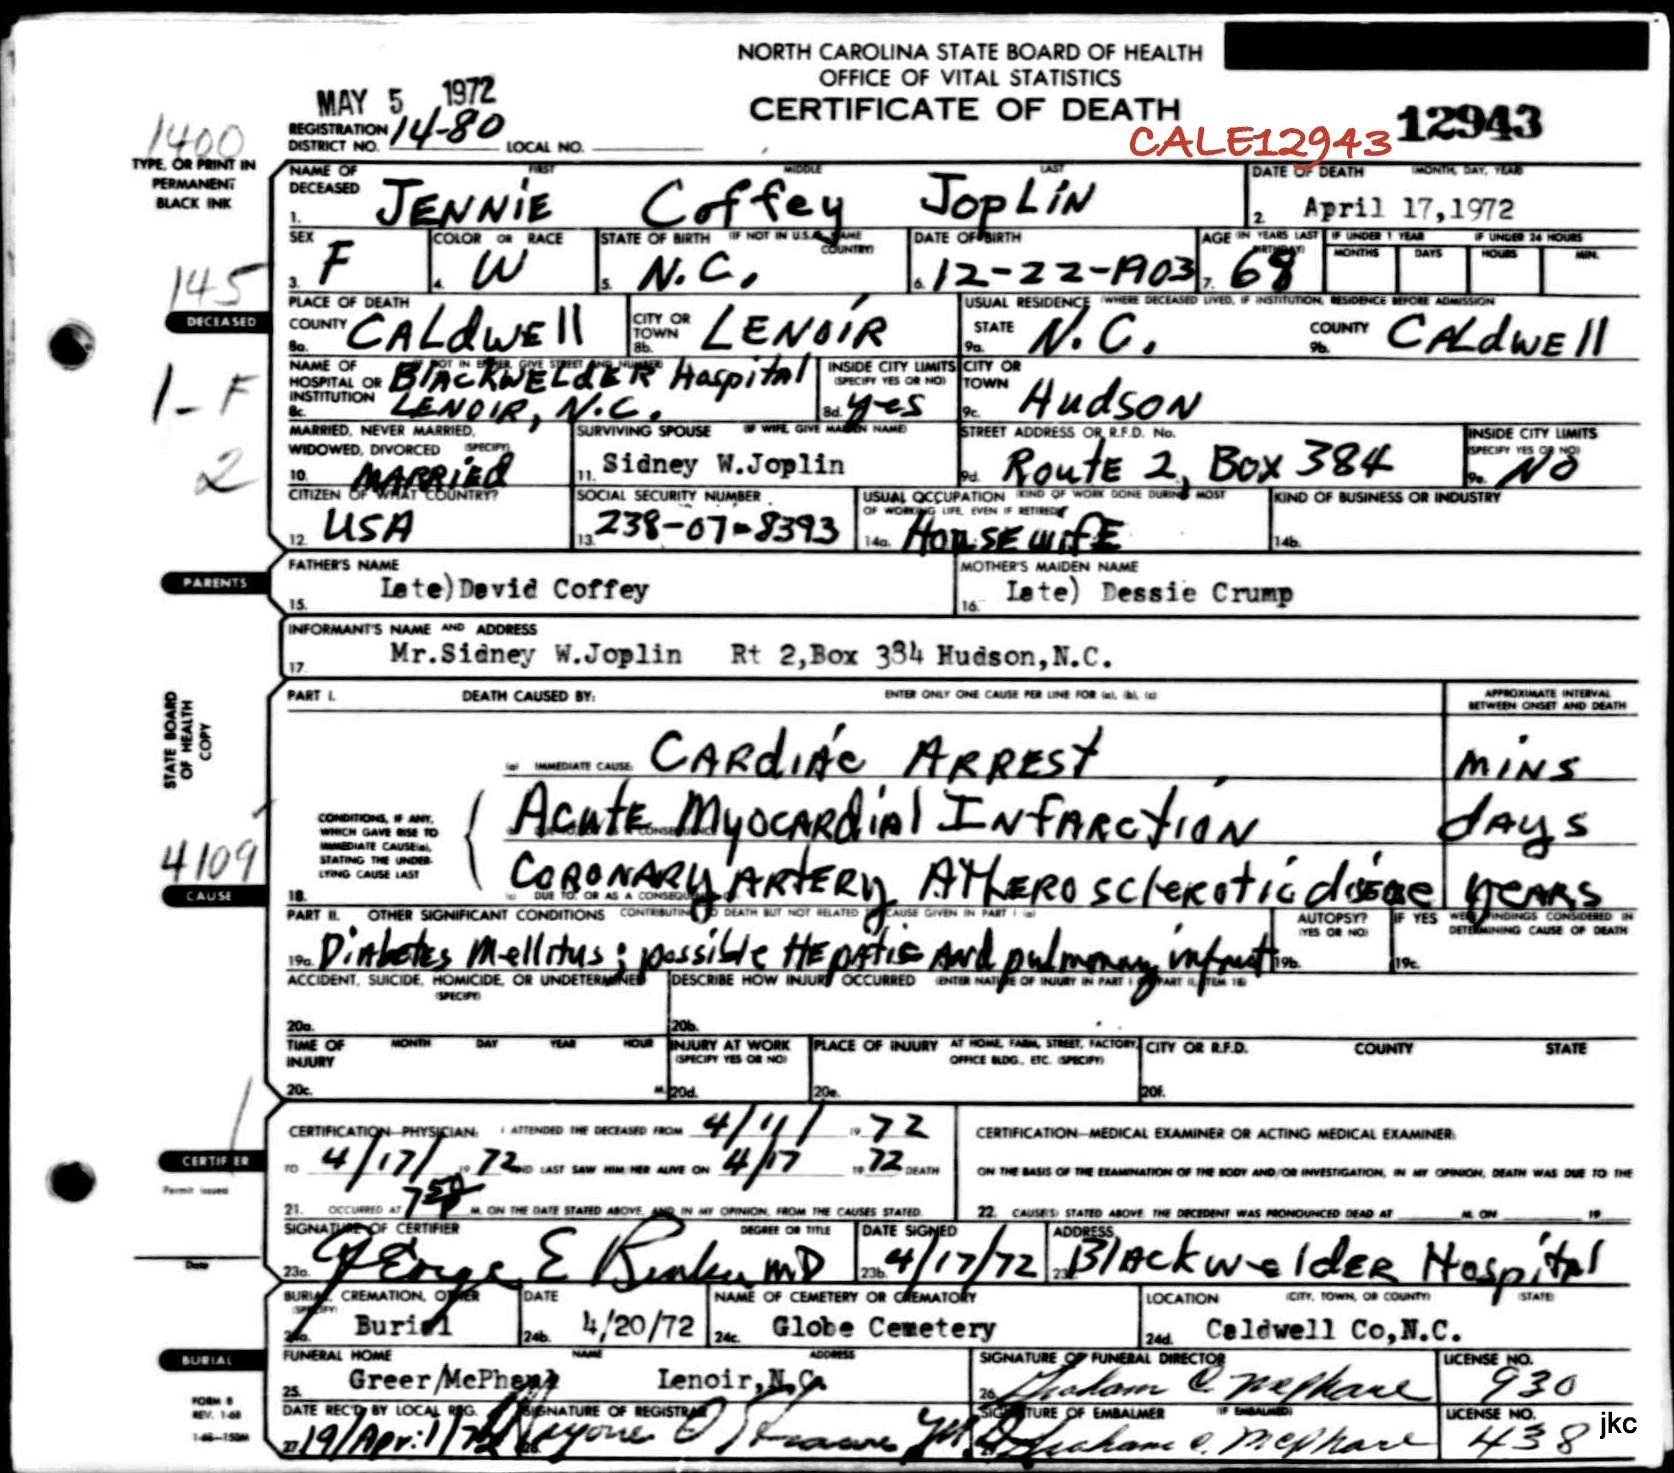 NORTH CAROLINA STATE BOARD OF HEALTH
OFFICE OF VITAL STATISTICS
CERTIFICATE OF DEATH
MAY 5 1972
REGISTRATION DISTRICT NO. 14-80 LOCAL NO.
CALE12943 12943
1400
TYPE, OR PRINT IN
PERMANENT
BLACK INK
NAME OF DECEASED FIRST MIDDLE LAST DATE OF DEATH (MONTH, DAY, YEAR)
1. JENNIE Coffey JOPLIN 2. April 17,1972
SEX COLOR OR RACE STATE OF BIRTH (IF NOT IN U.S.A. NAME COUNTRY) DATE OF BIRTH AGE (IN YEARS LAST BIRTHDAY) IF UNDER 1 YEAR IF UNDER 24 HOURS
MONTHS DAYS HOURS MIN.
3. F 4. W 5. N.C. 6. 12-22-1903 7. 68
145
DECEASED
PLACE OF DEATH USUAL RESIDENCE (WHERE DECEASED LIVED, IF INSTITUTION, RESIDENCE BEFORE ADMISSION
COUNTY 8a. CALDWEll CITY OR TOWN 8b. LENOIR STATE 9a. N.C. COUNTY 9b. CALDWEll
NAME OF HOSPITAL OR INSTITUTION (IF NOT IN EITHER, GIVE STREET AND NUMBER) INSIDE CITY LIMITS (SPECIFY YES OR NO) CITY OR TOWN
8c. BlACKWELdER Hospital
LENOIR, N.C. 8d. yes 9c. HudsoN
1-F
2
MARRIED, NEVER MARRIED, WIDOWED, DIVORCED (SPECIFY) SURVIVING SPOUSE (IF WIFE, GIVE MAIDEN NAME) STREET ADDRESS OR R.F.D. No. INSIDE CITY LIMITS (SPECIFY YES OR NO)
10. MARRIED 11. Sidney W.Joplin 9d. RoutE 2, Box 384 9e. NO
CITIZEN OF WHAT COUNTRY? SOCIAL SECURITY NUMBER USUAL OCCUPATION (KIND OF WORK DONE DURING MOST OF WORKING LIFE, EVEN IF RETIRED) KIND OF BUSINESS OR INDUSTRY
12. USA 13. 238-07-8393 14a. HousEwifE 14b.
PARENTS
FATHER'S NAME MOTHER'S MAIDEN NAME
15. Late)David Coffey 16. Late) Dessie Crump
INFORMANT'S NAME AND ADDRESS
17. Mr.Sidney W.Joplin Rt 2,Box 384 Hudson,N.C.
STATE BOARD
OF HEALTH
COPY
PART I. DEATH CAUSED BY: ENTER ONLY ONE CAUSE PER LINE FOR (a), (b), (c) APPROXIMATE INTERVAL BETWEEN ONSET AND DEATH
(a) IMMEDIATE CAUSE: CARdiAc ARREST MINS
CONDITIONS, IF ANY, WHICH GAVE RISE TO IMMEDIATE CAUSE(a), STATING THE UNDERLYING CAUSE LAST
AcutE MyocARdiAl INFARCTION dAys
(b) DUE TO, OR AS A CONSEQUENCE
CORONARY ARTERY AthERosclerotic disease yEARS
18. (c) DUE TO, OR AS A CONSEQUENCE
4109
CAUSE
PART II. OTHER SIGNIFICANT CONDITIONS CONTRIBUTING TO DEATH BUT NOT RELATED TO CAUSE GIVEN IN PART I (a) AUTOPSY? (YES OR NO) IF YES WERE FINDINGS CONSIDERED IN DETERMINING CAUSE OF DEATH
19a. DiAbetes Mellitus; possible HEpAtic And pulmonary infarct 19b. 19c.
ACCIDENT, SUICIDE, HOMICIDE, OR UNDETERMINED (SPECIFY) DESCRIBE HOW INJURY OCCURRED (ENTER NATURE OF INJURY IN PART I OR PART II, ITEM 18)
20a. 20b.
TIME OF INJURY MONTH DAY YEAR HOUR INJURY AT WORK (SPECIFY YES OR NO) PLACE OF INJURY AT HOME, FARM, STREET, FACTORY, OFFICE BLDG., ETC. (SPECIFY) CITY OR R.F.D. COUNTY STATE
20c. M. 20d. 20e. 20f.
CERTIFIER
Permit issued
Date
CERTIFICATION—PHYSICIAN: I ATTENDED THE DECEASED FROM 4/11/ 19 72 CERTIFICATION—MEDICAL EXAMINER OR ACTING MEDICAL EXAMINER:
TO 4/17/ 19 72 AND LAST SAW HIM/HER ALIVE ON 4/17 19 72 DEATH ON THE BASIS OF THE EXAMINATION OF THE BODY AND/OR INVESTIGATION, IN MY OPINION, DEATH WAS DUE TO THE
21. OCCURRED AT 7 50 P M. ON THE DATE STATED ABOVE, AND IN MY OPINION, FROM THE CAUSES STATED. 22. CAUSE(S) STATED ABOVE. THE DECEDENT WAS PRONOUNCED DEAD AT M. ON 19
SIGNATURE OF CERTIFIER DEGREE OR TITLE DATE SIGNED ADDRESS
23a. George E MD 23b. 4/17/72 BlAckwelder Hospital
BURIAL, CREMATION, OTHER (SPECIFY) DATE NAME OF CEMETERY OR CREMATORY LOCATION (CITY, TOWN, OR COUNTY) (STATE)
24a. Burial 24b. 4/20/72 24c. Globe Cemetery 24d. Caldwell Co,N.C.
BURIAL
FUNERAL HOME NAME ADDRESS SIGNATURE OF FUNERAL DIRECTOR LICENSE NO.
25. Greer/McPhane Lenoir,N.C. 26. Graham C. McPhane 930
FORM 8
REV. 1-68
DATE REC'D BY LOCAL REG. SIGNATURE OF REGISTRAR SIGNATURE OF EMBALMER (IF EMBALMED) LICENSE NO.
27. 19/April/72 28. Graham C. McPhane 438
jkc